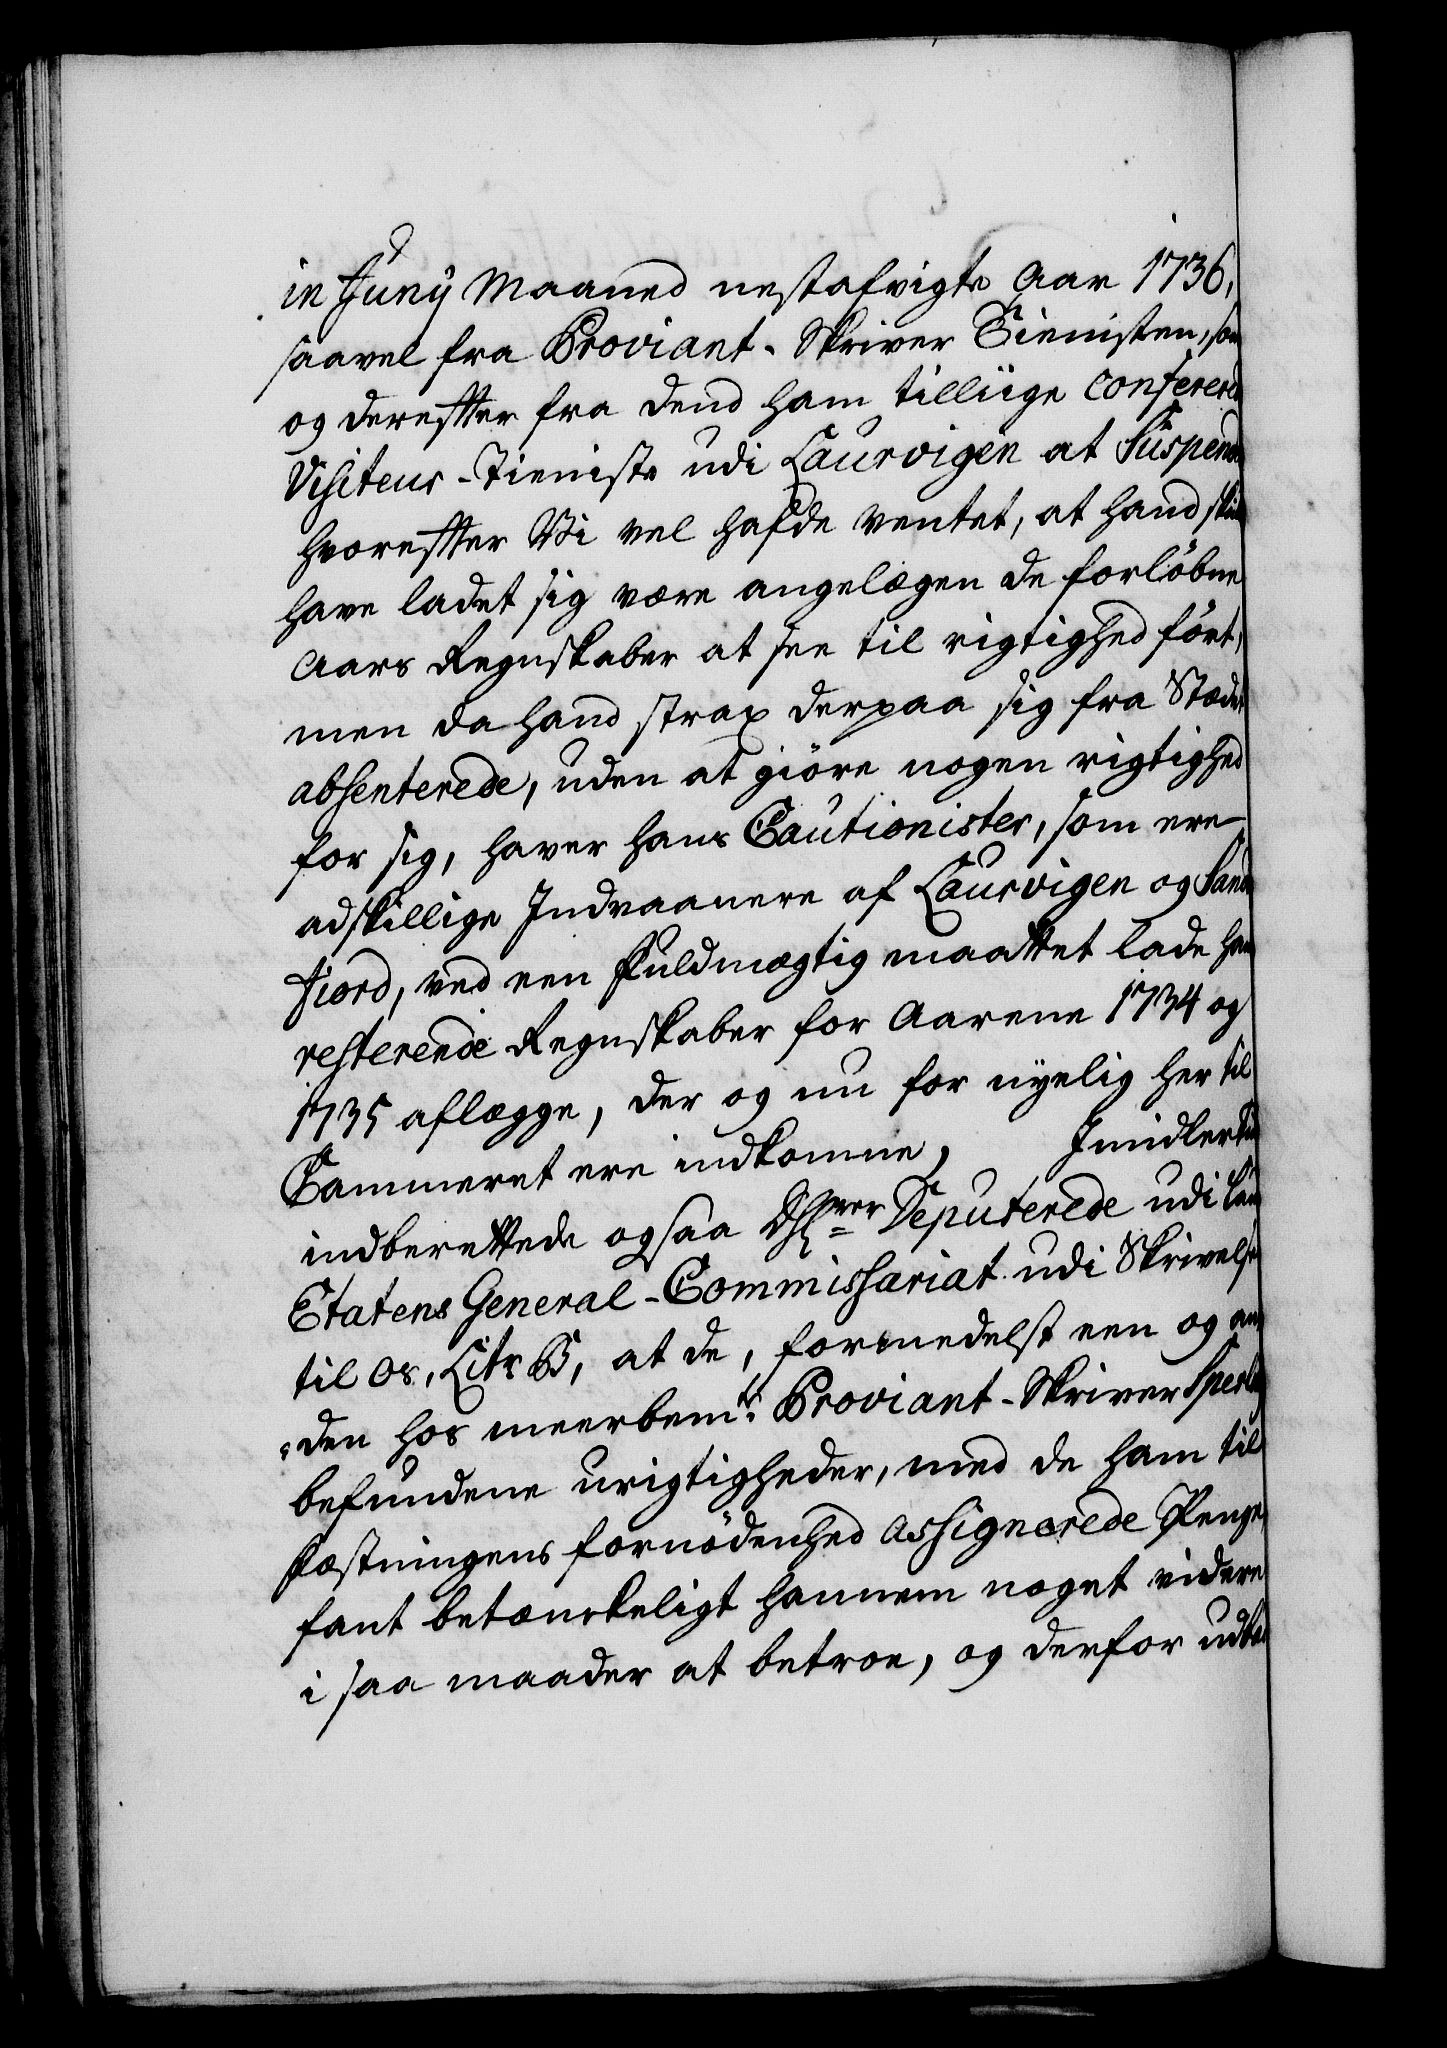 in Juny Maaned nestafvigte Aar 1736,
saavel fra Proviant-Skriver Tienisten, som
og derefter fra dend ham tilliige Confererede
Visiteur-Tieniste udi Laurvigen at Suspend
hvorefter Vi vel hafde ventet, at hand skulle
have ladet sig være angelægen de forløbne
Aars Regnskaber at see til rigtighed ført,
men da hand strax derpaa sig fra Stædet
absenterede, uden at giøre nogen rigtighed
for sig, haver hans Cautionister, som ere
adskillige Indvaanere af Laurvigen og Sande
fiord, ved een Fuldmægtig maattet lade hans
resterende Regnskaber for Aarene 1734 og
1735 aflægge, der og nu for nyelig her til
Cammeret ere indkomne, Imidlertid
indberettede ogsaa Dhrrer Deputerede udi Land
Etatens General-Commissariat udi Skrivelse
til os, Litr B, at de, formedelst een og an
den hos meerbemte Proviant-Skriver Sperling
befundene urigtigheder, med de ham til
Fæstningens fornødenhed assignerede Penge,
fant betænkeligt hannem noget videre
i saa maader at betroe, og derfor udbad